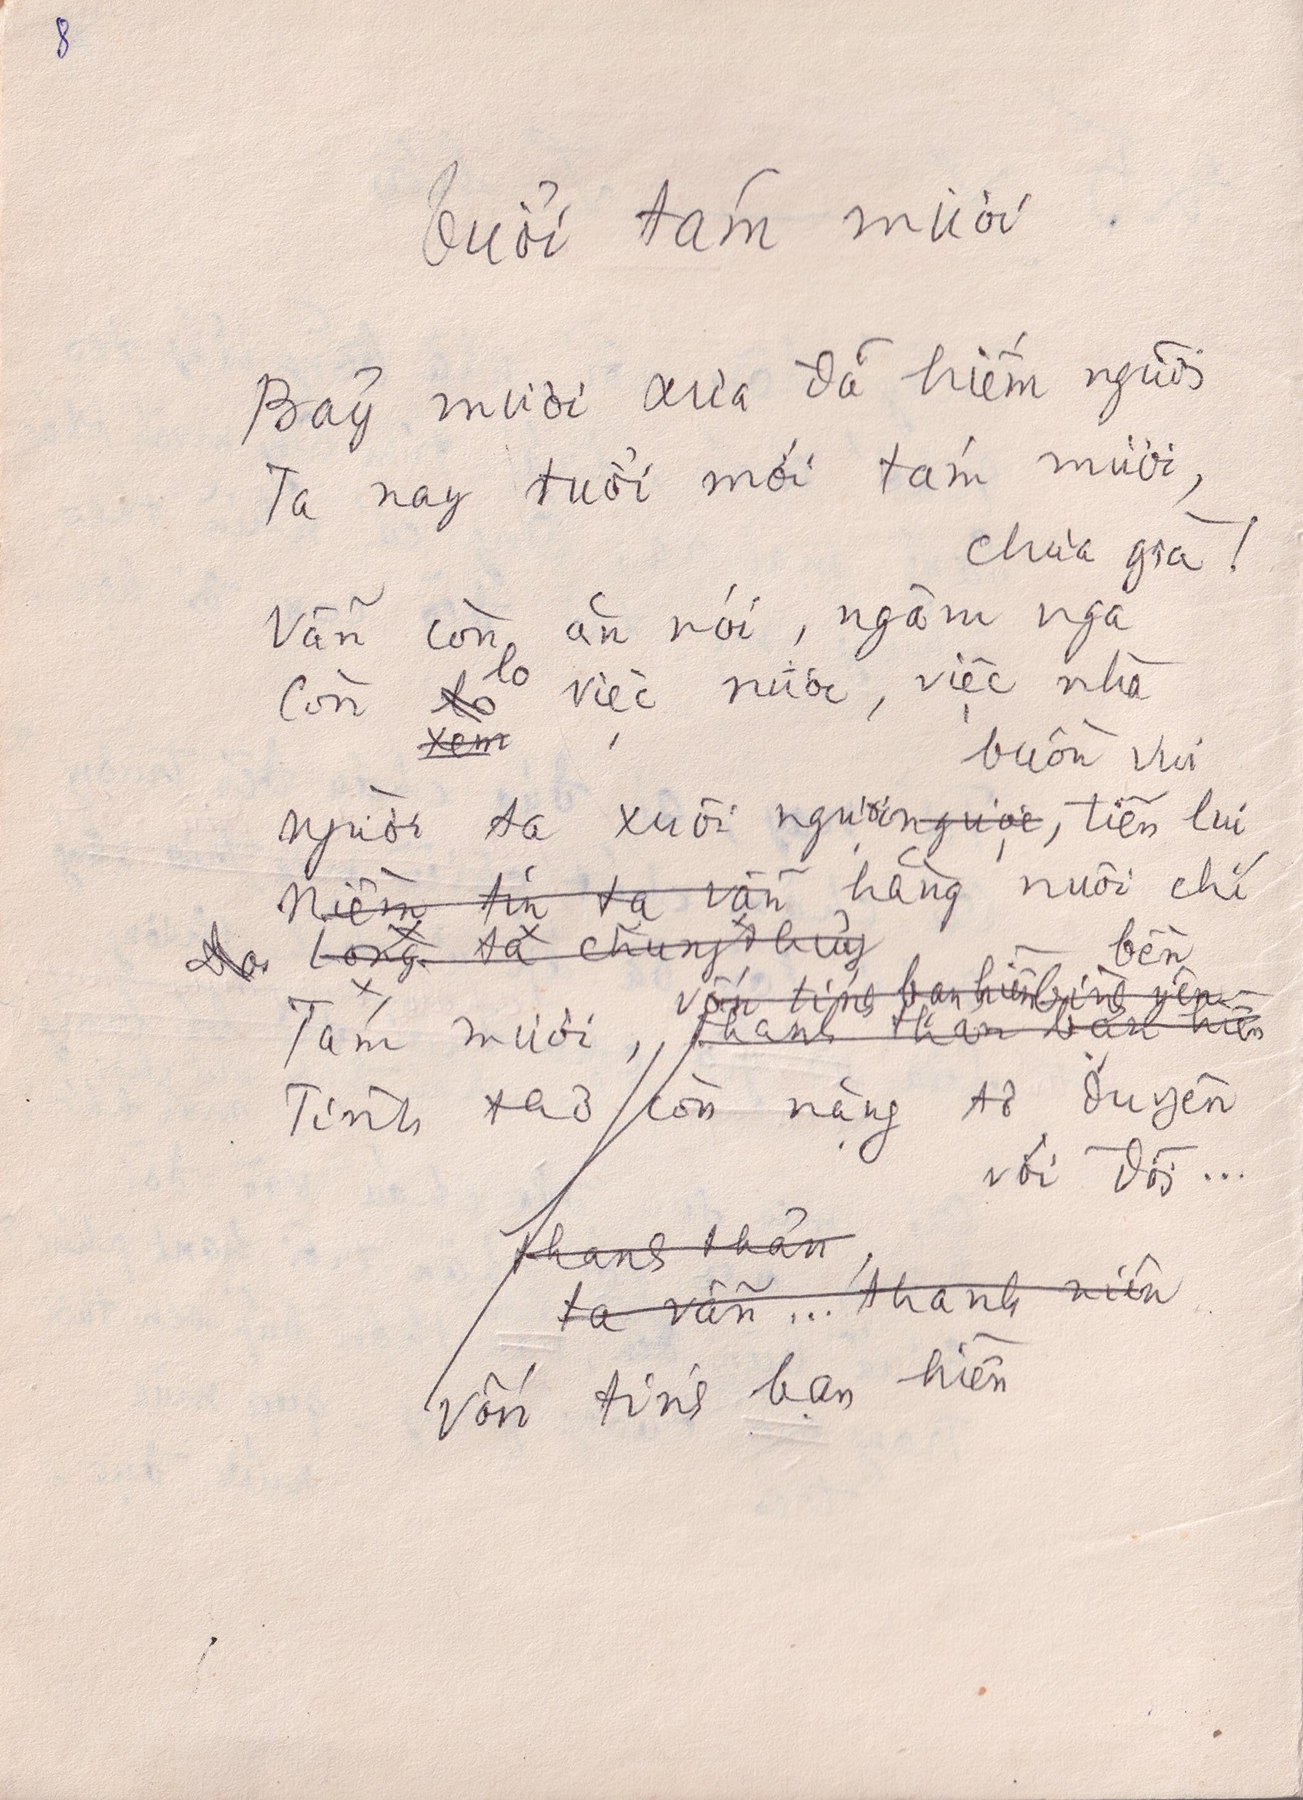 8
Tuổi tám mươi
Bảy mươi xưa đã hiếm người
Ta nay tuổi mới tám mươi,
chưa già!
Vẫn còn ăn nói, ngâm nga
Còn lo lo việc nước, việc nhà
xem
buồn vui
Người ta xuôi ngược ngược, tiến lui
Niềm tin ta vẫn hằng nuôi chí
Lòng ta chung thủy
bền
vốn tính bạn hiền bình yên
Tám mươi, thanh thản bạn hiền
Tình thơ còn nặng tơ duyên
với đời...
thanh thản,
ta vẫn... thanh niên
vốn tính bạn hiền